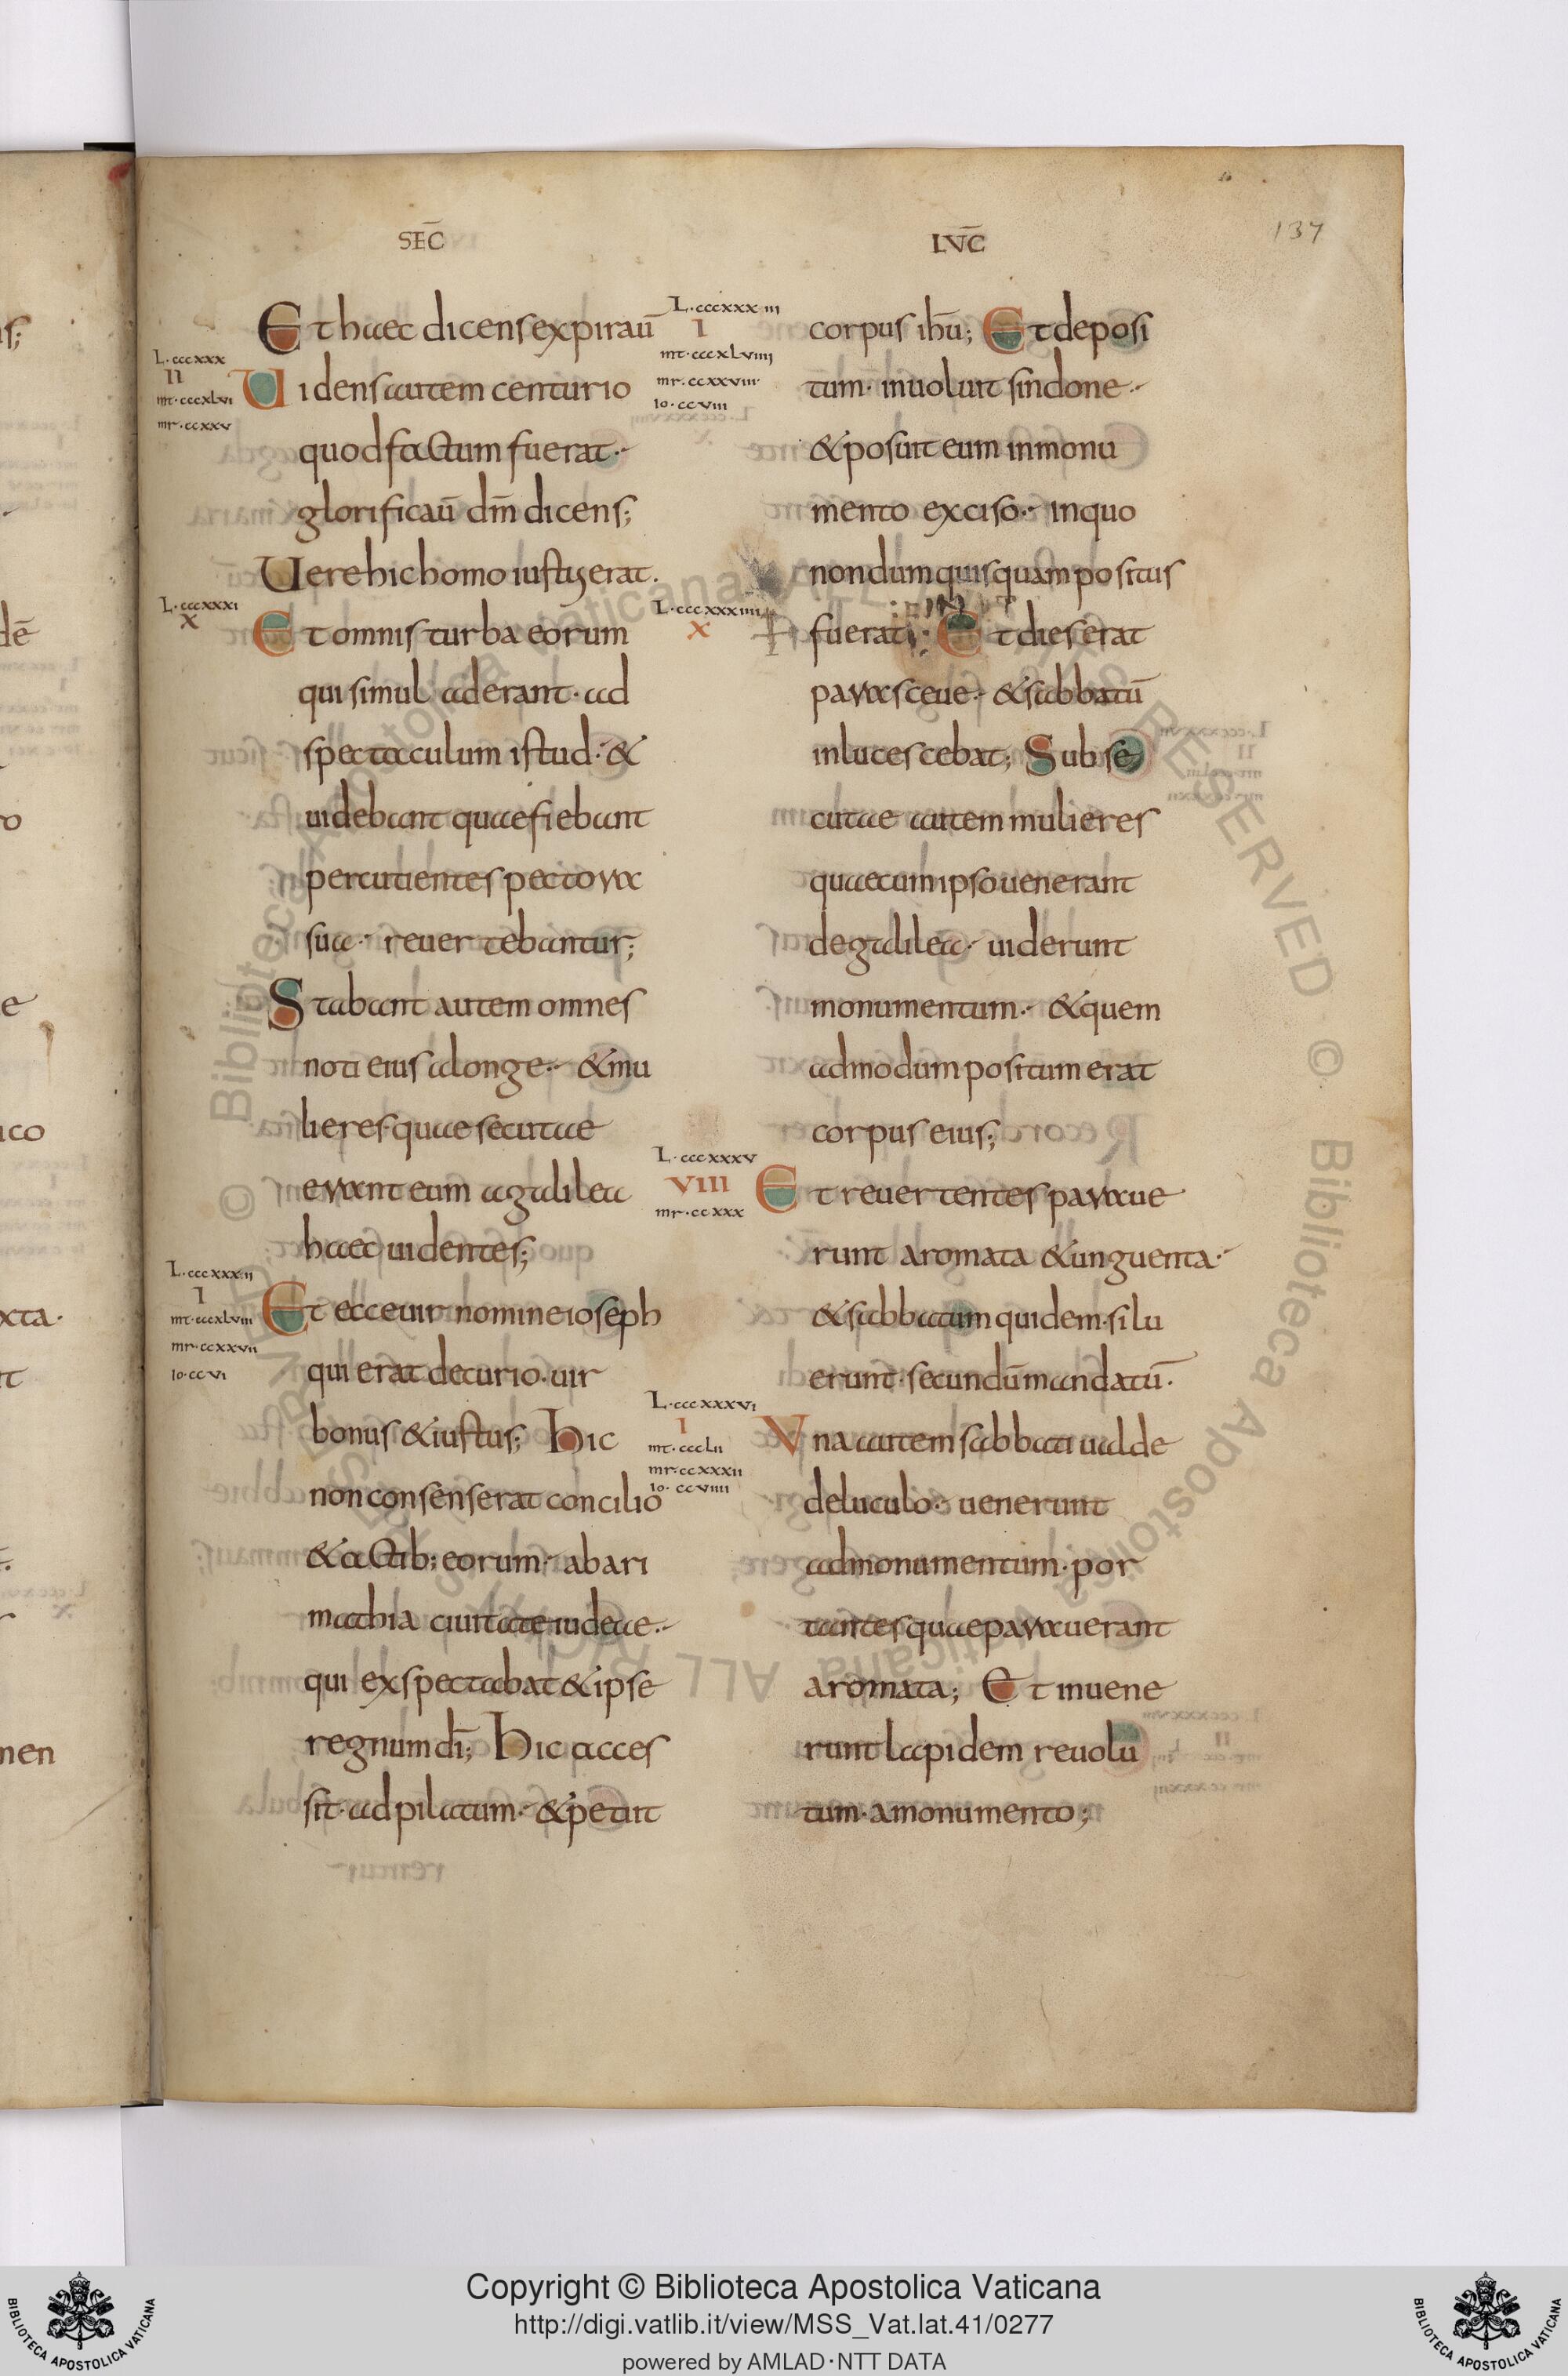 SEC̄
LVC̄
137
Et haec dicens expirau̅
L·cccxxx
II
mt·cccxlvi
mr·ccxxv
Uidens autem centurio
quod factum fuerat·
glorificau̅ dm̅ dicens;
Uere hic homo iustus erat.
L·cccxxxi
X
Et omnis turba eorum
qui simul aderant· ad
spectaculum istud· &
uidebant quae fiebant
percutientes pectora
sua· reuertebantur;
Stabant autem omnes
noti eius alonge· & mu
lieres· quae secutae
erant eum agalilea
haec uidentes;
L·cccxxxii
I
mt·cccxlviii
mr·ccxxvii
io·ccvi
Et ecce uir nomine ioseph
qui erat decurio· uir
bonus & iustus; hic
non consenserat concilio
& actib: eorum· abari
mathia ciuitate iudeae·
qui exspectabat & ipse
regnum di̅; hic acces
sit· ad pilatum· & petiit
L·cccxxxiii
I
mt·cccxlviiii
mr·ccxxviii·
io·ccviii
corpus ihu̅; Et deposi
tum· inuoluit sindone·
& posuit eum in monu
mento exciso· in quo
nondum quisquam positus
L·cccxxxiiii
X
fuerat; Et dies erat
parasceue· & sabbatu̅
inlucescebat; Sub se
cutae autem mulieres
quae cum ipso uenerant
de galilea· uiderunt
monumentum· & quem
admodum positum erat
corpus eius;
L·cccxxxv
VIII
mr·ccxxx
Et reuertentes paraue
runt aromata & unguenta·
& sabbatum quidem· silu
erunt· secundu̅ mandatu̅·
L·cccxxxvi
I
mt·ccclii
mr·ccxxxii
io·ccviiii
Una autem sabbati ualde
deluculo· uenerunt
ad monumentum· por
tantes quae parauerant
aromata; Et inuene
runt lapidem reuolu
tum· a monumento;
© Biblioteca Apostolica Vaticana ALL RIGHTS RESERVED © Biblioteca Apostolica Vaticana ALL RIGHTS RESERVED
Copyright © Biblioteca Apostolica Vaticana
http://digi.vatlib.it/view/MSS_Vat.lat.41/0277
powered by AMLAD·NTT DATA
BIBLIOTECA APOSTOLICA VATICANA
BIBLIOTECA APOSTOLICA VATICANA